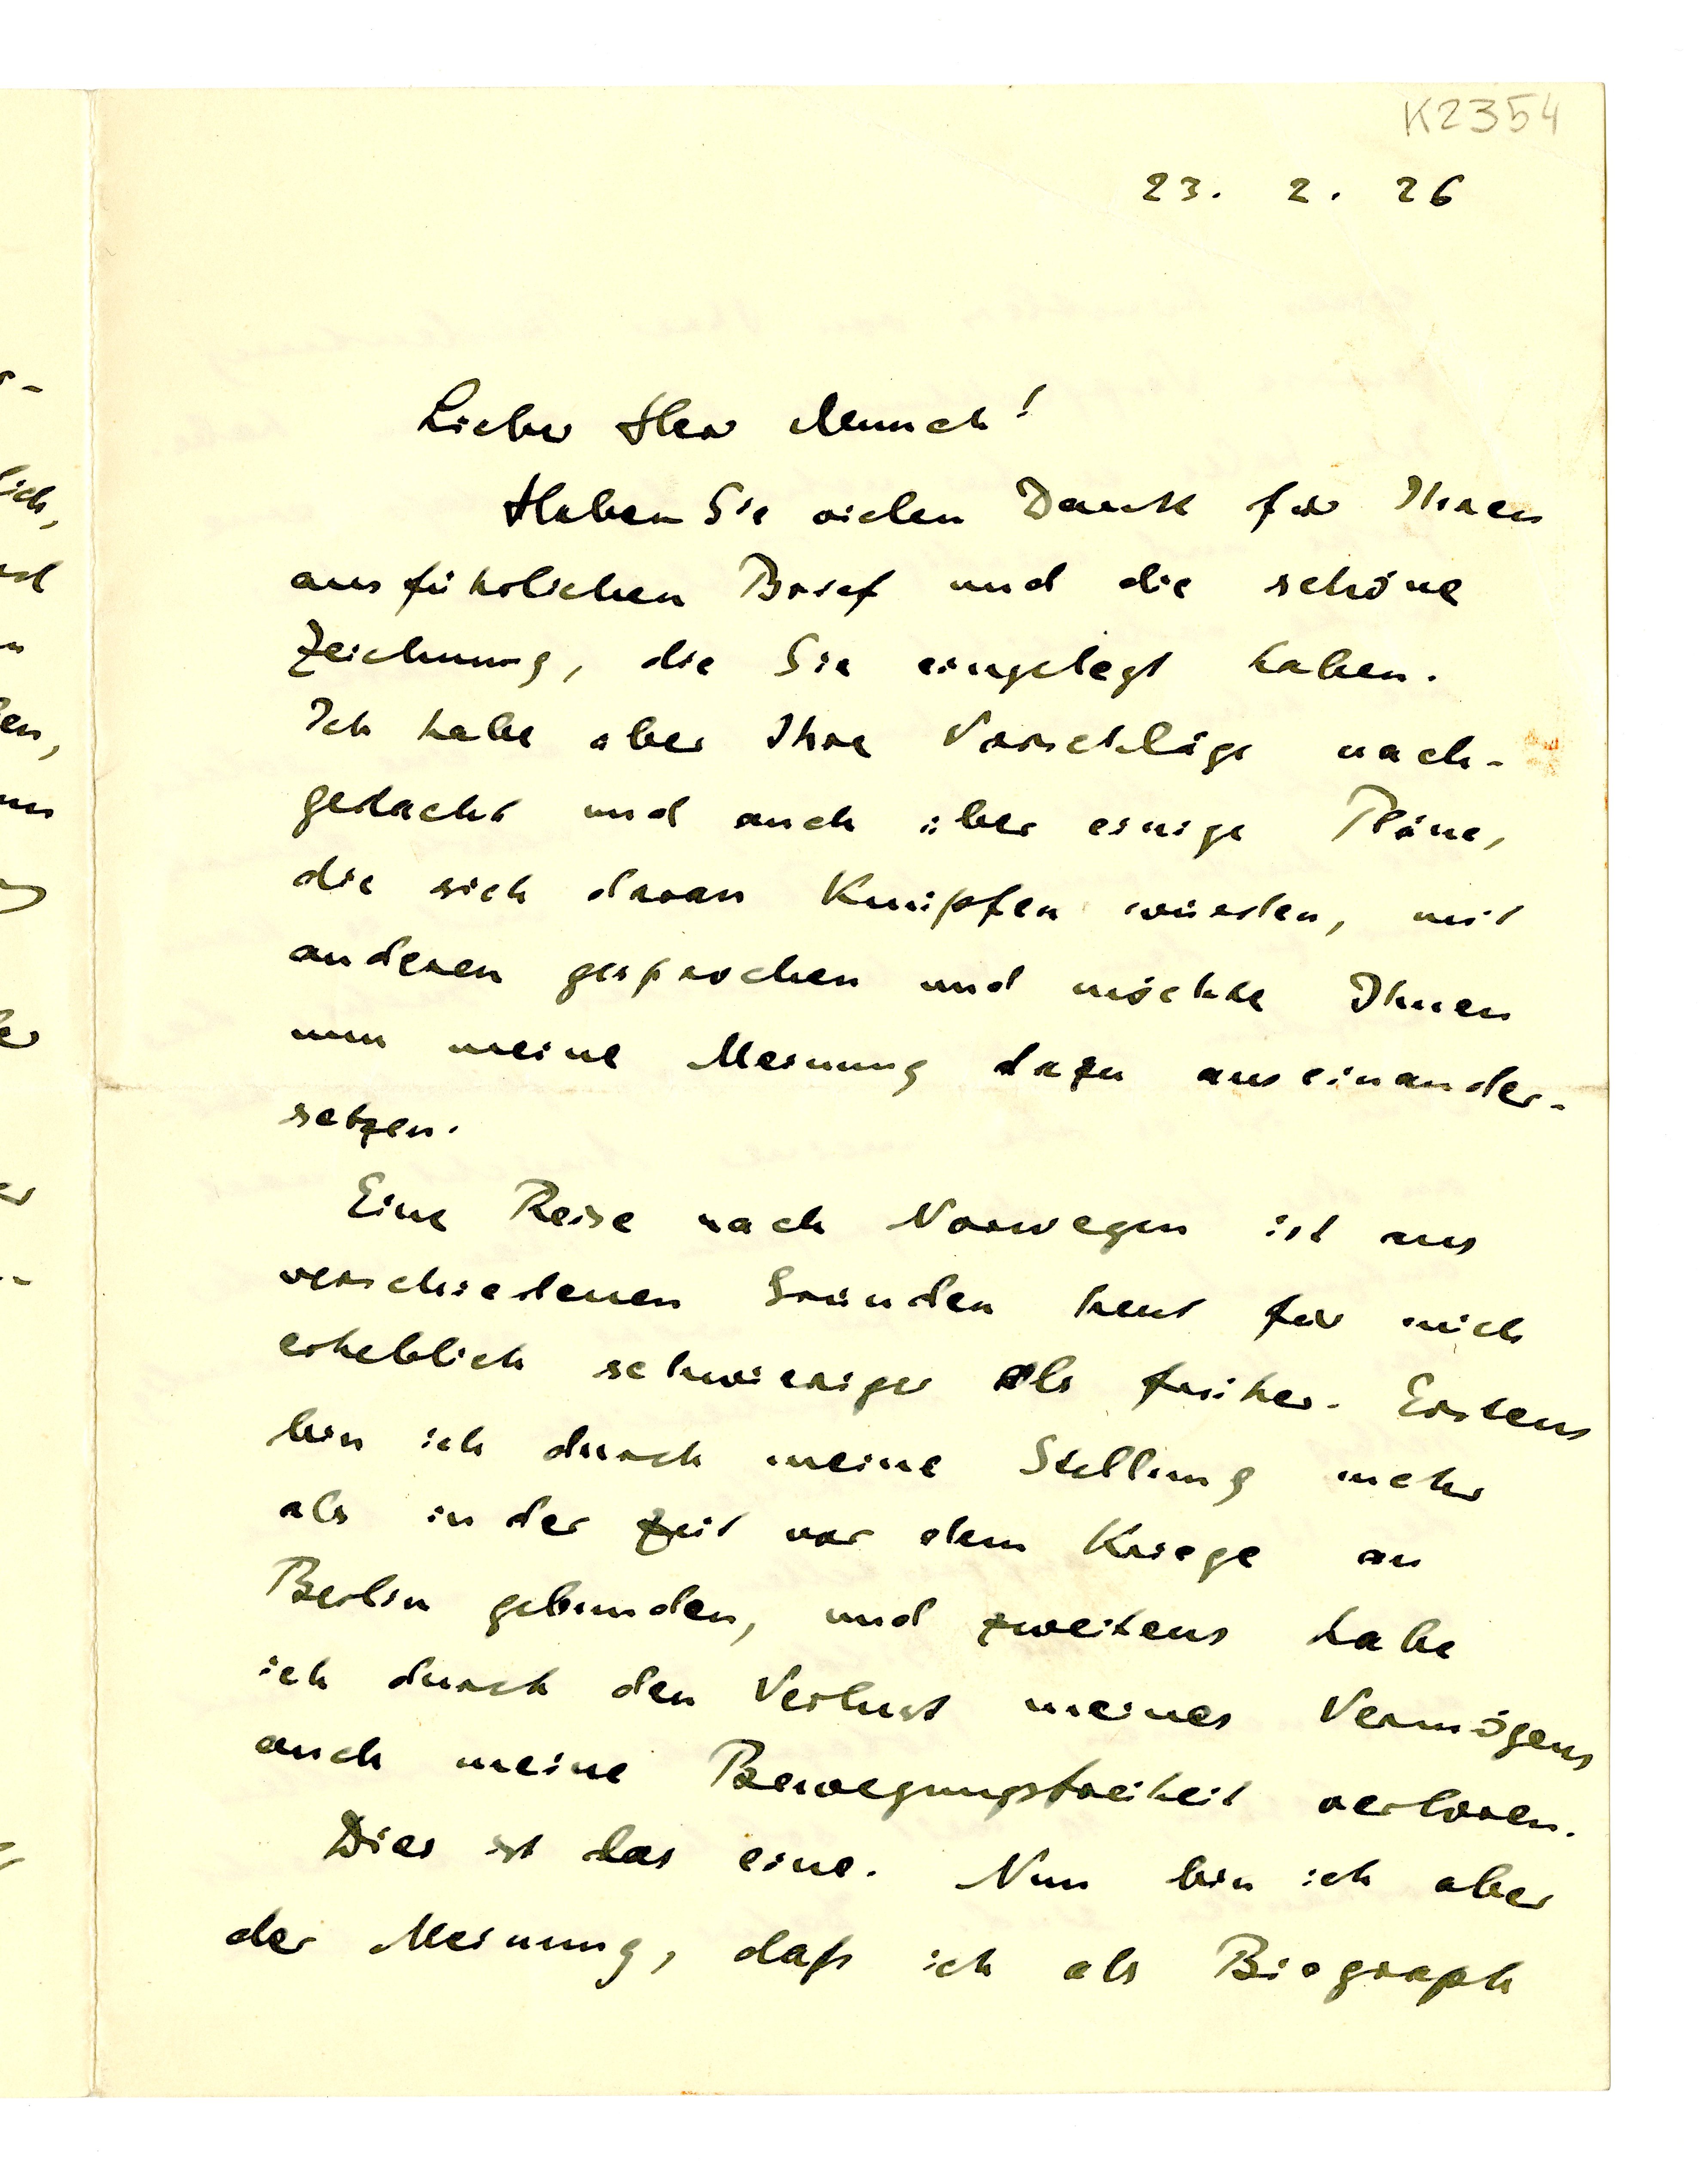 K2354
23. 2. 26
Lieber Herr Munch!
Haben Sie vielen Dank für Ihren
ausführlichen Brief und die schöne
Zeichnung, die Sie eingelegt haben.
Ich habe über Ihre Vorschläge nach-
gedacht und auch über einige Pläne,
die sich daran knüpfen würden, mit
anderen gesprochen und möchte Ihnen
nun meine Meinung dazu auseinander-
setzen.
Eine Reise nach Norwegen ist aus
verschiedenen Gründen heut für mich
erheblich schwieriger als früher. Erstens
bin ich durch meine Stellung mehr
als in der Zeit vor dem Kriege an
Berlin gebunden, und zweitens habe
ich durch den Verlust meines Vermögens
auch meine Bewegungsfreiheit verloren.
Dies ist das eine. Nun bin ich aber
der Meinung, daß ich als Biograph